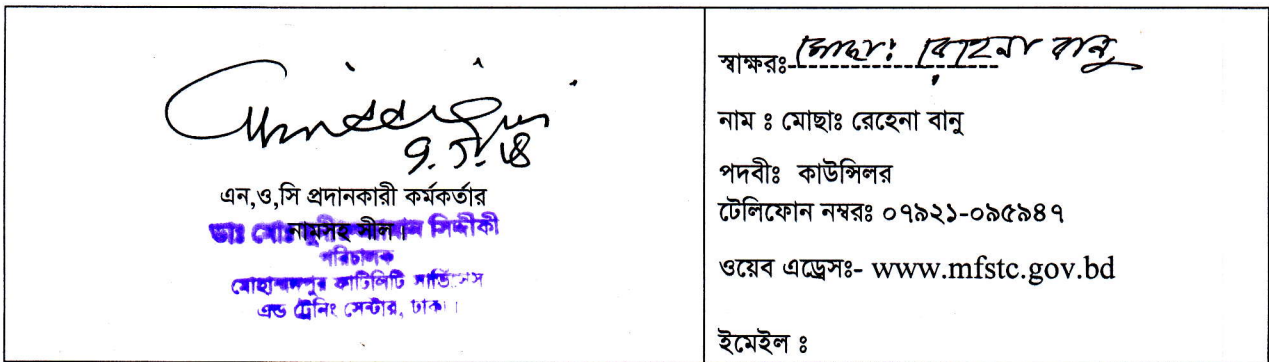 9.5.18
এন,ও,সি প্রদানকারী কর্মকর্তার
নামসহ সীল।
ডাঃ মোঃ সিদ্দীকী
পরিচালক
মোহাম্মদপুর ফার্টিলিটি সার্ভিসেস
এন্ড ট্রেনিং সেন্টার, ঢাকা।
স্বাক্ষরঃ মোছাঃ রেহেনা বানু
নাম ঃ মোছাঃ রেহেনা বানু
পদবীঃ কাউন্সিলর
টেলিফোন নম্বরঃ ০৭৯২১-০৯৫৯৪৭
ওয়েব এড্রেসঃ- www.mfstc.gov.bd
ইমেইল ঃ